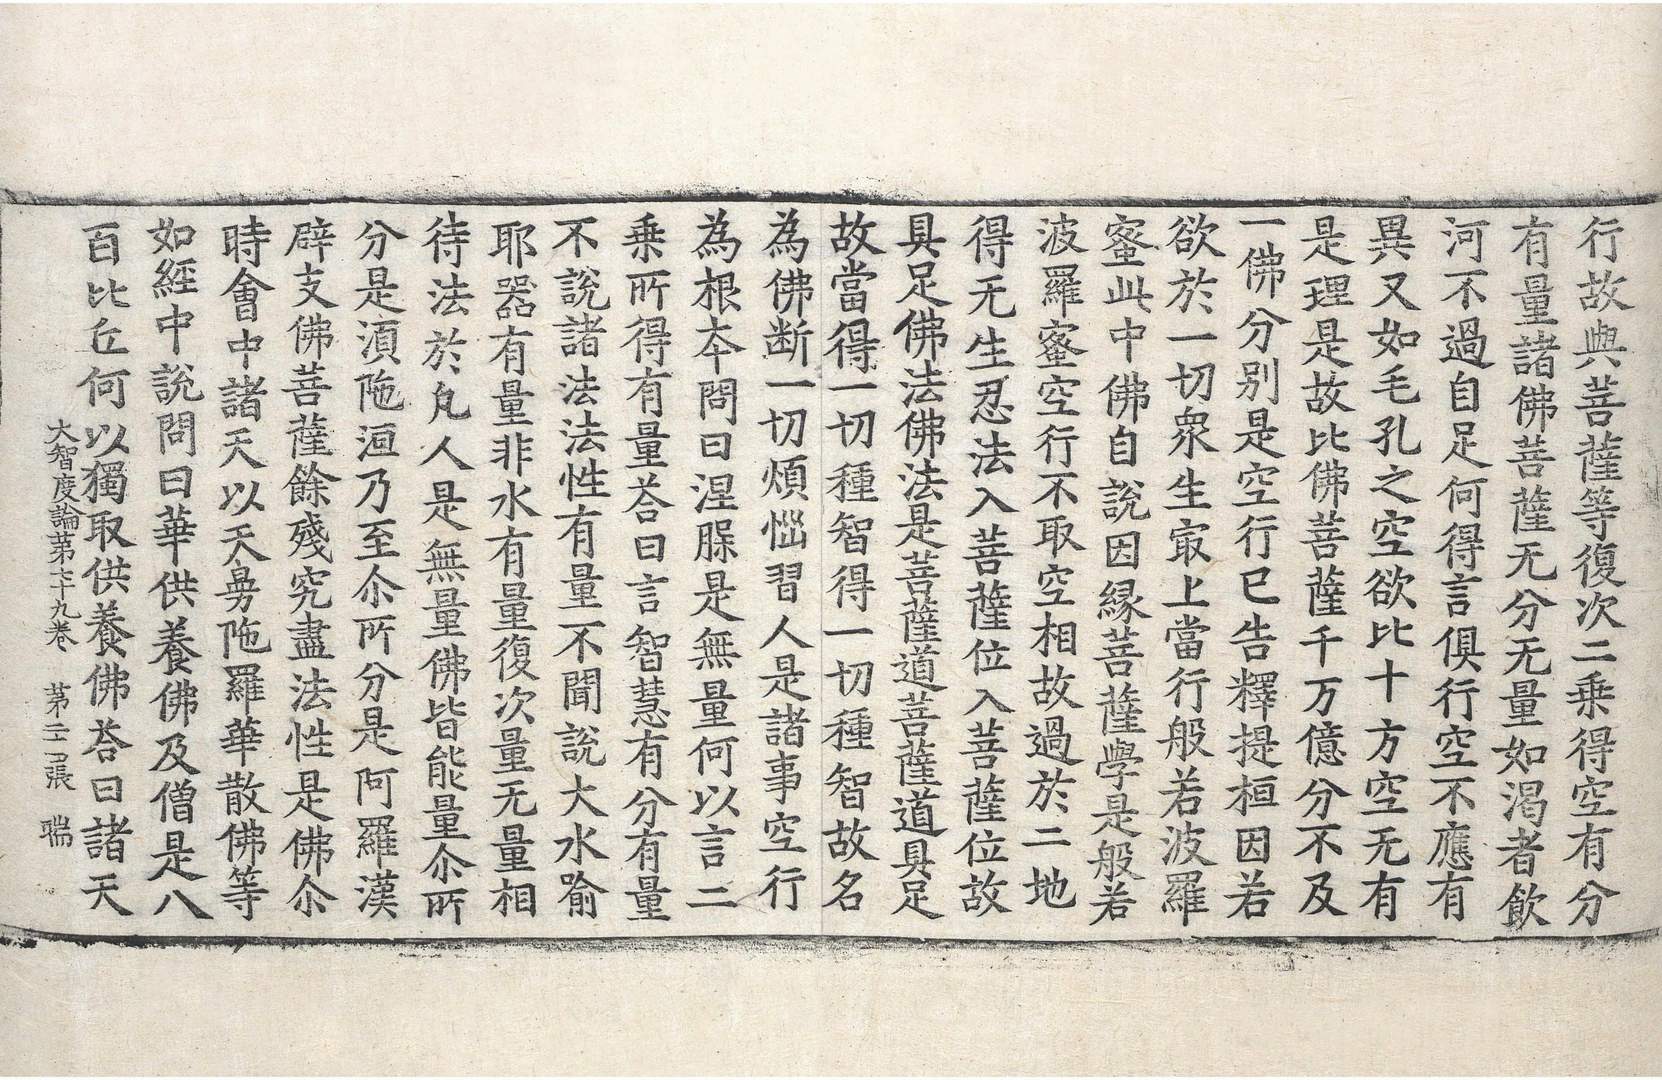 行故與菩薩等復次二乘得空有分
有量諸佛菩薩无分无量如渴者飮
河不過自足何得言俱行空不應有
異又如毛孔之空欲比十方空无有
是理是故比佛菩薩千万億分不及
一佛分別是空行已告釋提桓因若
欲於一切衆生㝡上當行般若波羅
蜜此中佛自說因緣菩薩學是般若
波羅蜜空行不取空相故過於二地
得无生忍法入菩薩位入菩薩位故
具足佛法佛法是菩薩道菩薩道具足
故當得一切種智得一切種智故名
為佛断一切煩惱習人是諸事空行
為根夲問曰涅槃是無量何以言二
乗所得有量荅曰言智慧有分有量
不說諸法法性有量不聞說大水喻
耶器有量非水有量復次量无量相
待法於凡人是無量佛皆能量尒所
分是湏陁洹乃至尒所分是阿羅漢
辟支佛菩薩餘殘究盡法性是佛尒
時會中諸天以天曼陁羅華散佛等
如經中說問曰華供養佛及僧是八
百比丘何以獨取供養佛荅曰諸天
大智度論第七十九卷 第三張 端